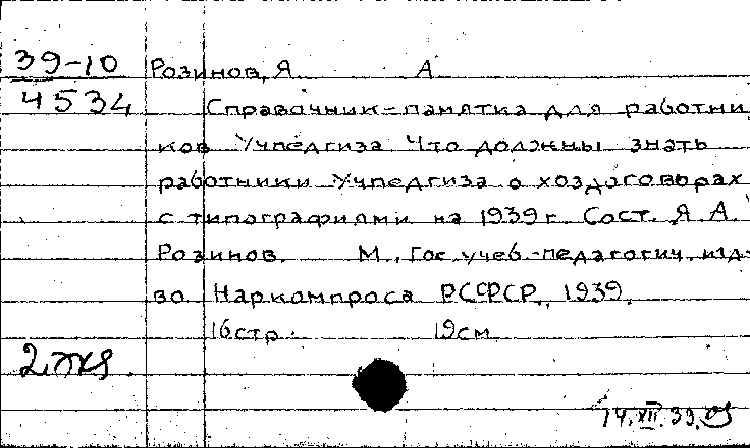 39-10 Розинов, Я А
4534 Справочник-памятка для работни
ков Учпедгиза Что должны знать
работники Учпедгиза о хоздоговорах
с типографиями на 1939 г. Сост. Я. А.
Розинов. М., Гос. учеб.-педагогич. изд-
во Наркомпроса РСФСР, 1939.
16 стр. 19 см
2 экз.
14.XII.39.